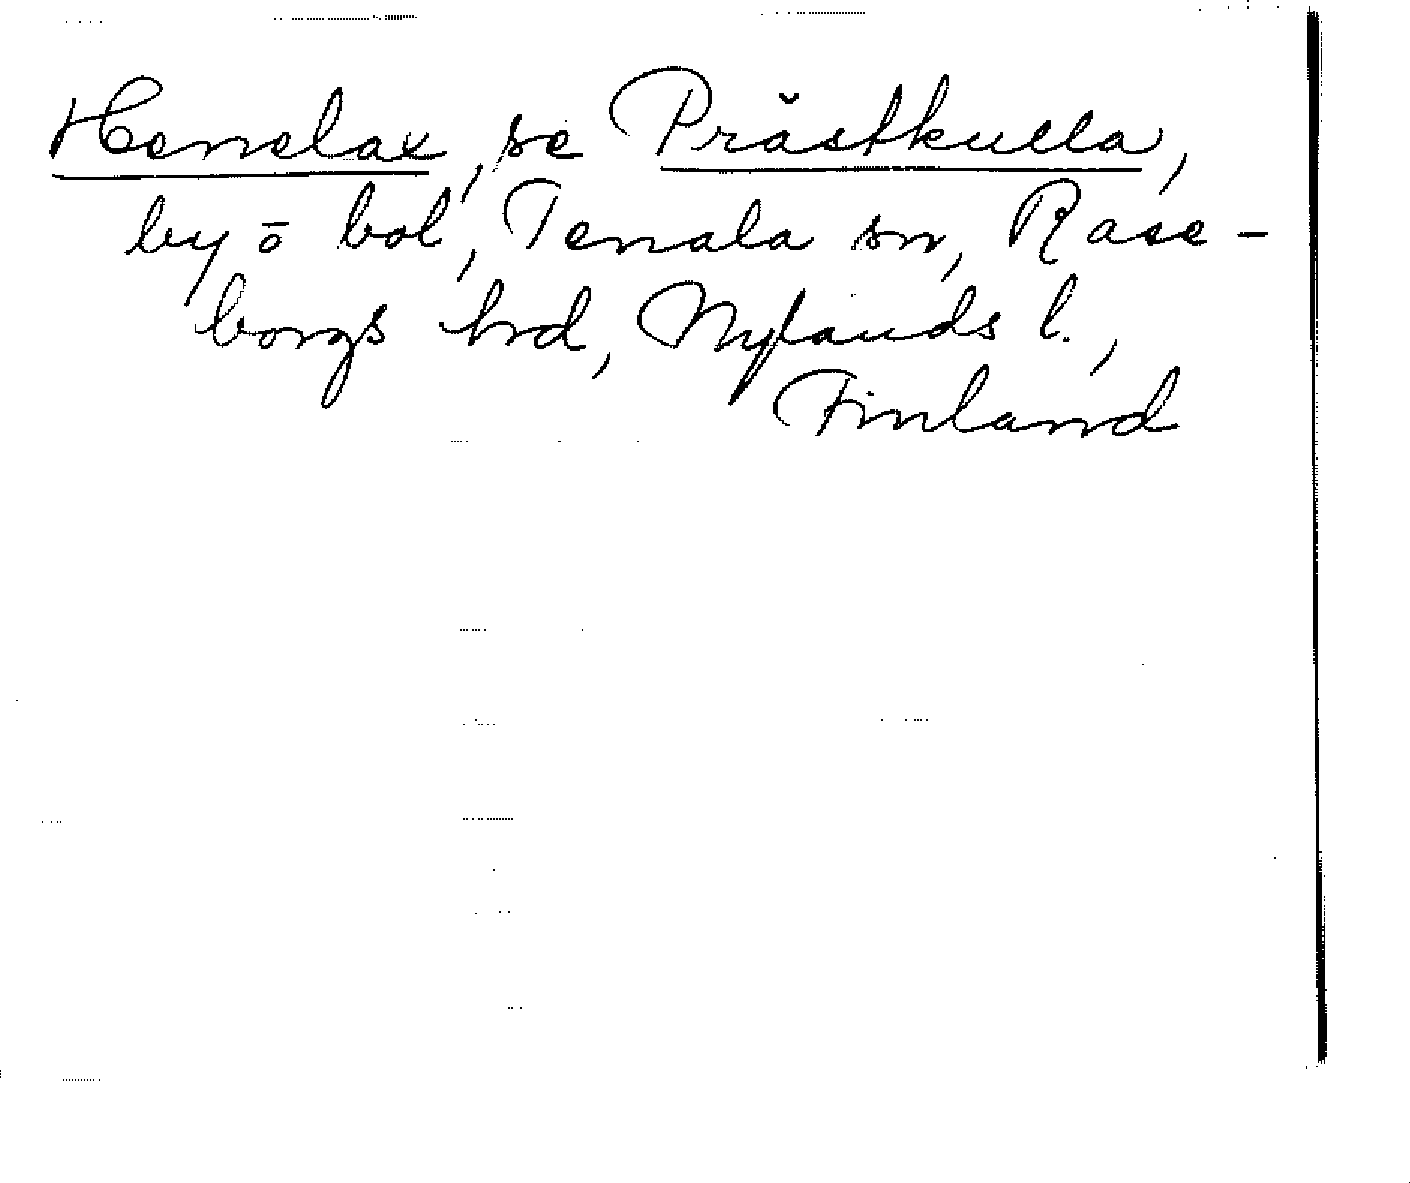 Henelax, se Prästkulla,
by ō bol, Tenala sn, Rase-
borgs hrd, Nylands l.,
Finland